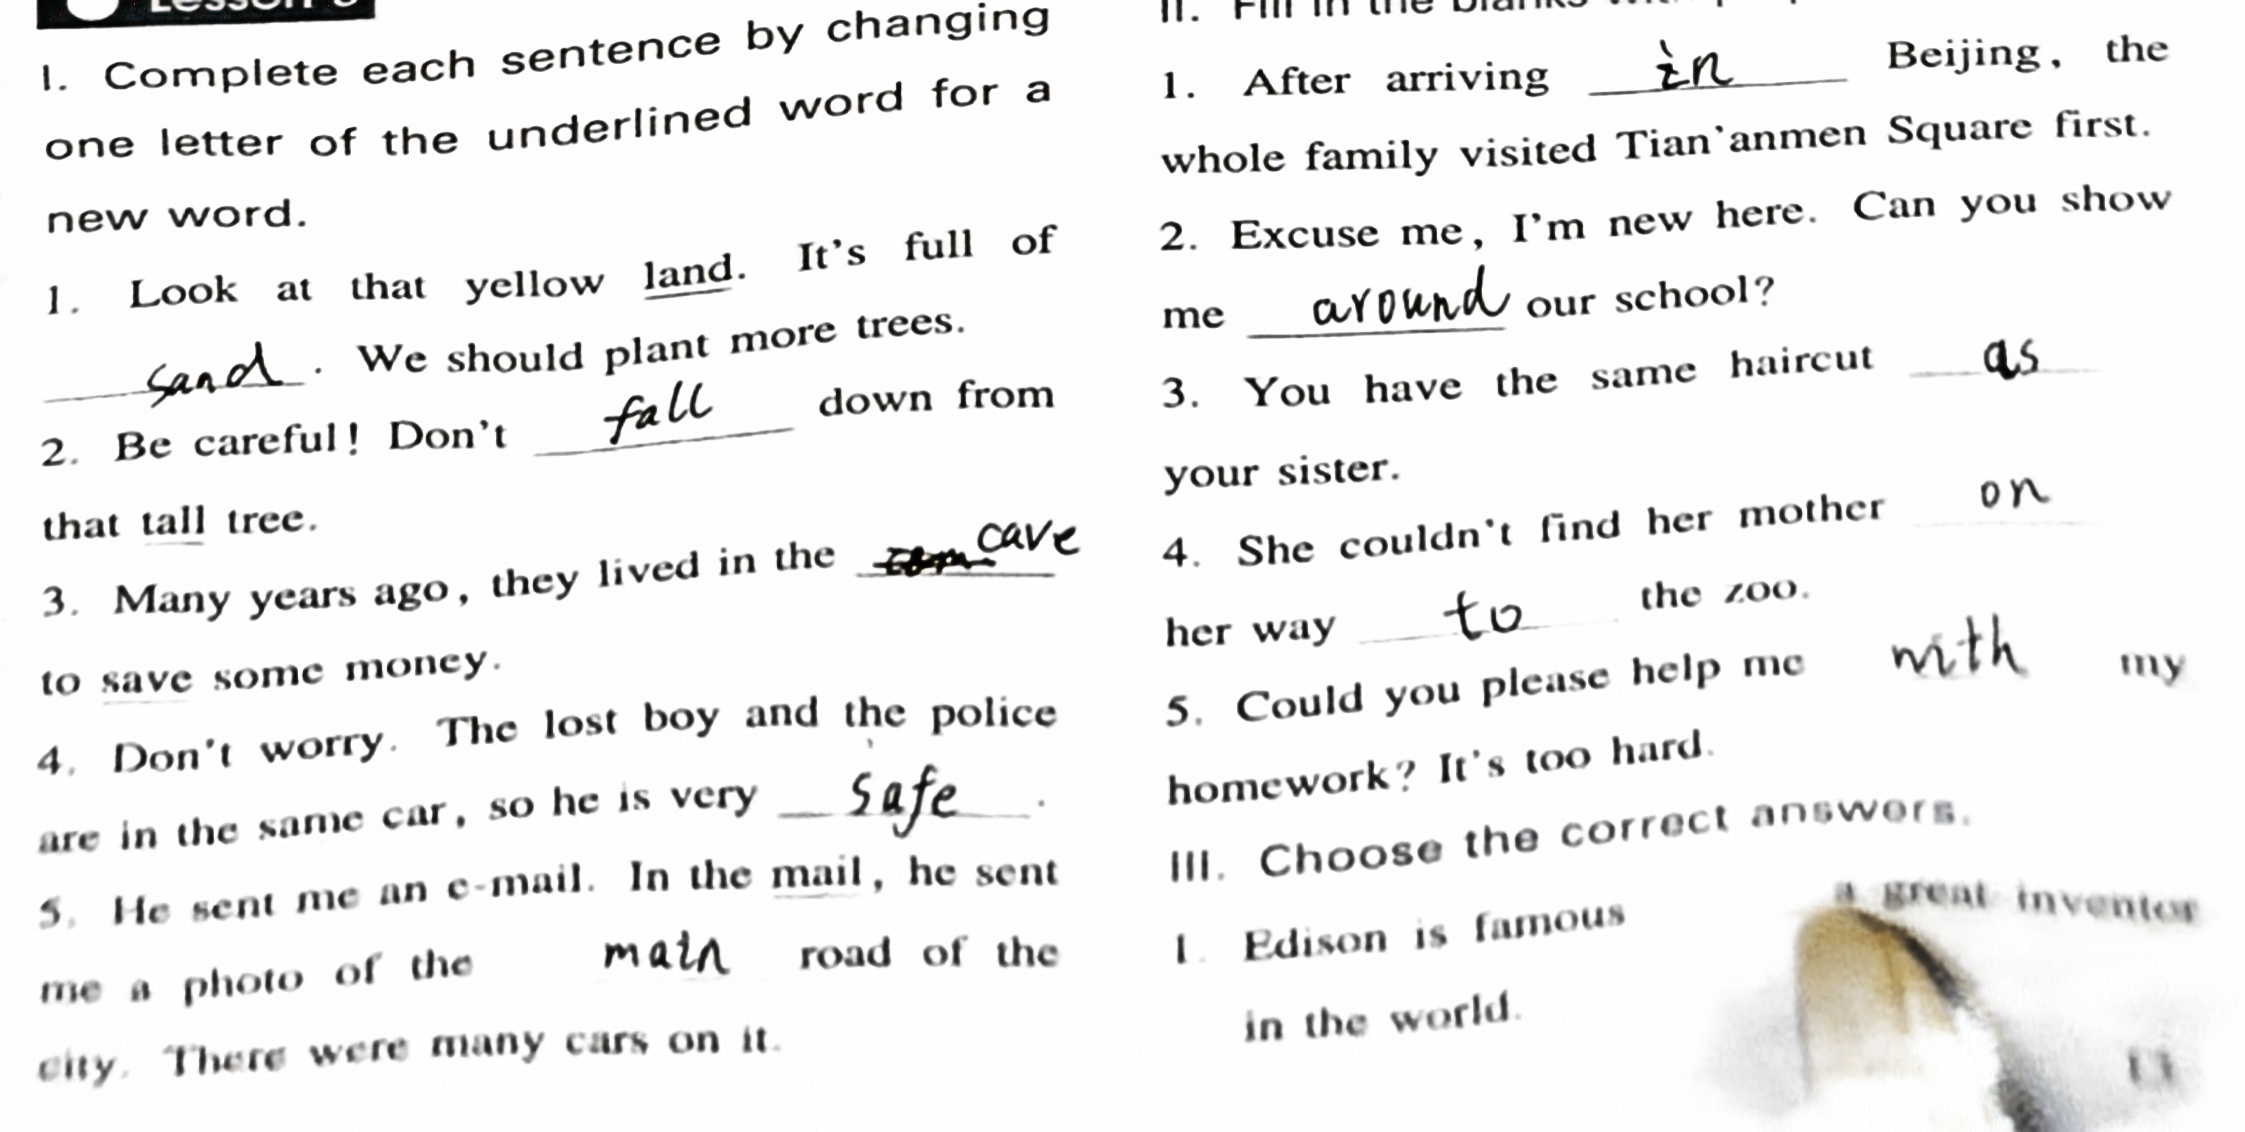 I. Complete each sentence by changing
one letter of the underlined word for a
new word.
1. Look at that yellow land. It's full of
sand . We should plant more trees.
2. Be careful! Don't fall down from
that tall tree.
3. Many years ago, they lived in the cave
to save some money.
4. Don't worry. The lost boy and the police
are in the same car, so he is very safe .
5. He sent me an e-mail. In the mail, he sent
me a photo of the main road of the
city. There were many cars on it.
II. Fill in the blanks
1. After arriving in Beijing, the
whole family visited Tian'anmen Square first.
2. Excuse me, I'm new here. Can you show
me around our school?
3. You have the same haircut as
your sister.
4. She couldn't find her mother on
her way to the zoo.
5. Could you please help me with my
homework? It's too hard.
III. Choose the correct answers.
1. Edison is famous a great inventor
in the world.